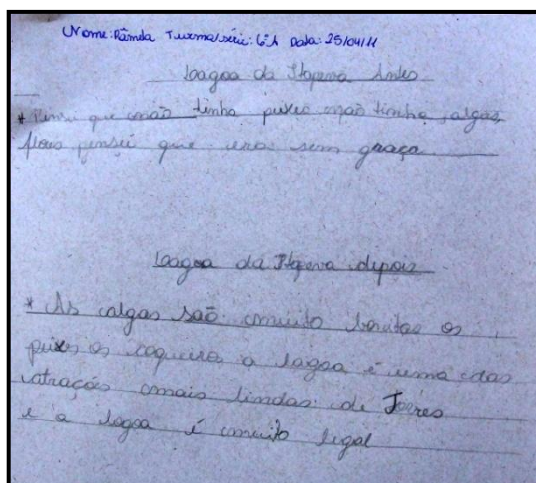 Nome: Pâmela Turma/série: 6ªA Data: 25/04/11
Lagoa da Itapeva Antes
* Pensei que não tinha peixes não tinha algas
flores pensei que era sem graça
Lagoa da Itapeva depois
* As algas são muito bonitas os
peixes os coqueiros a lagoa é uma das
atrações mais lindas de Torres
e a lagoa é muito legal